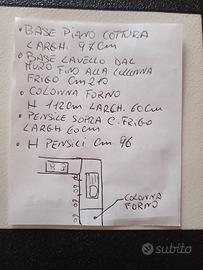 • BASE PIANO COTTURA
LARGH. 97cm
• BASE LAVELLO DAL
MURO FINO ALLA COLONNA
FRIGO cm 210
• COLONNA FORNO
H 112cm LARGH. 60cm
• PENSILE SOPRA C. FRIGO
LARGH 60cm
• H PENSILI cm 96
60
60
60
COLONNA
FORNO
subito